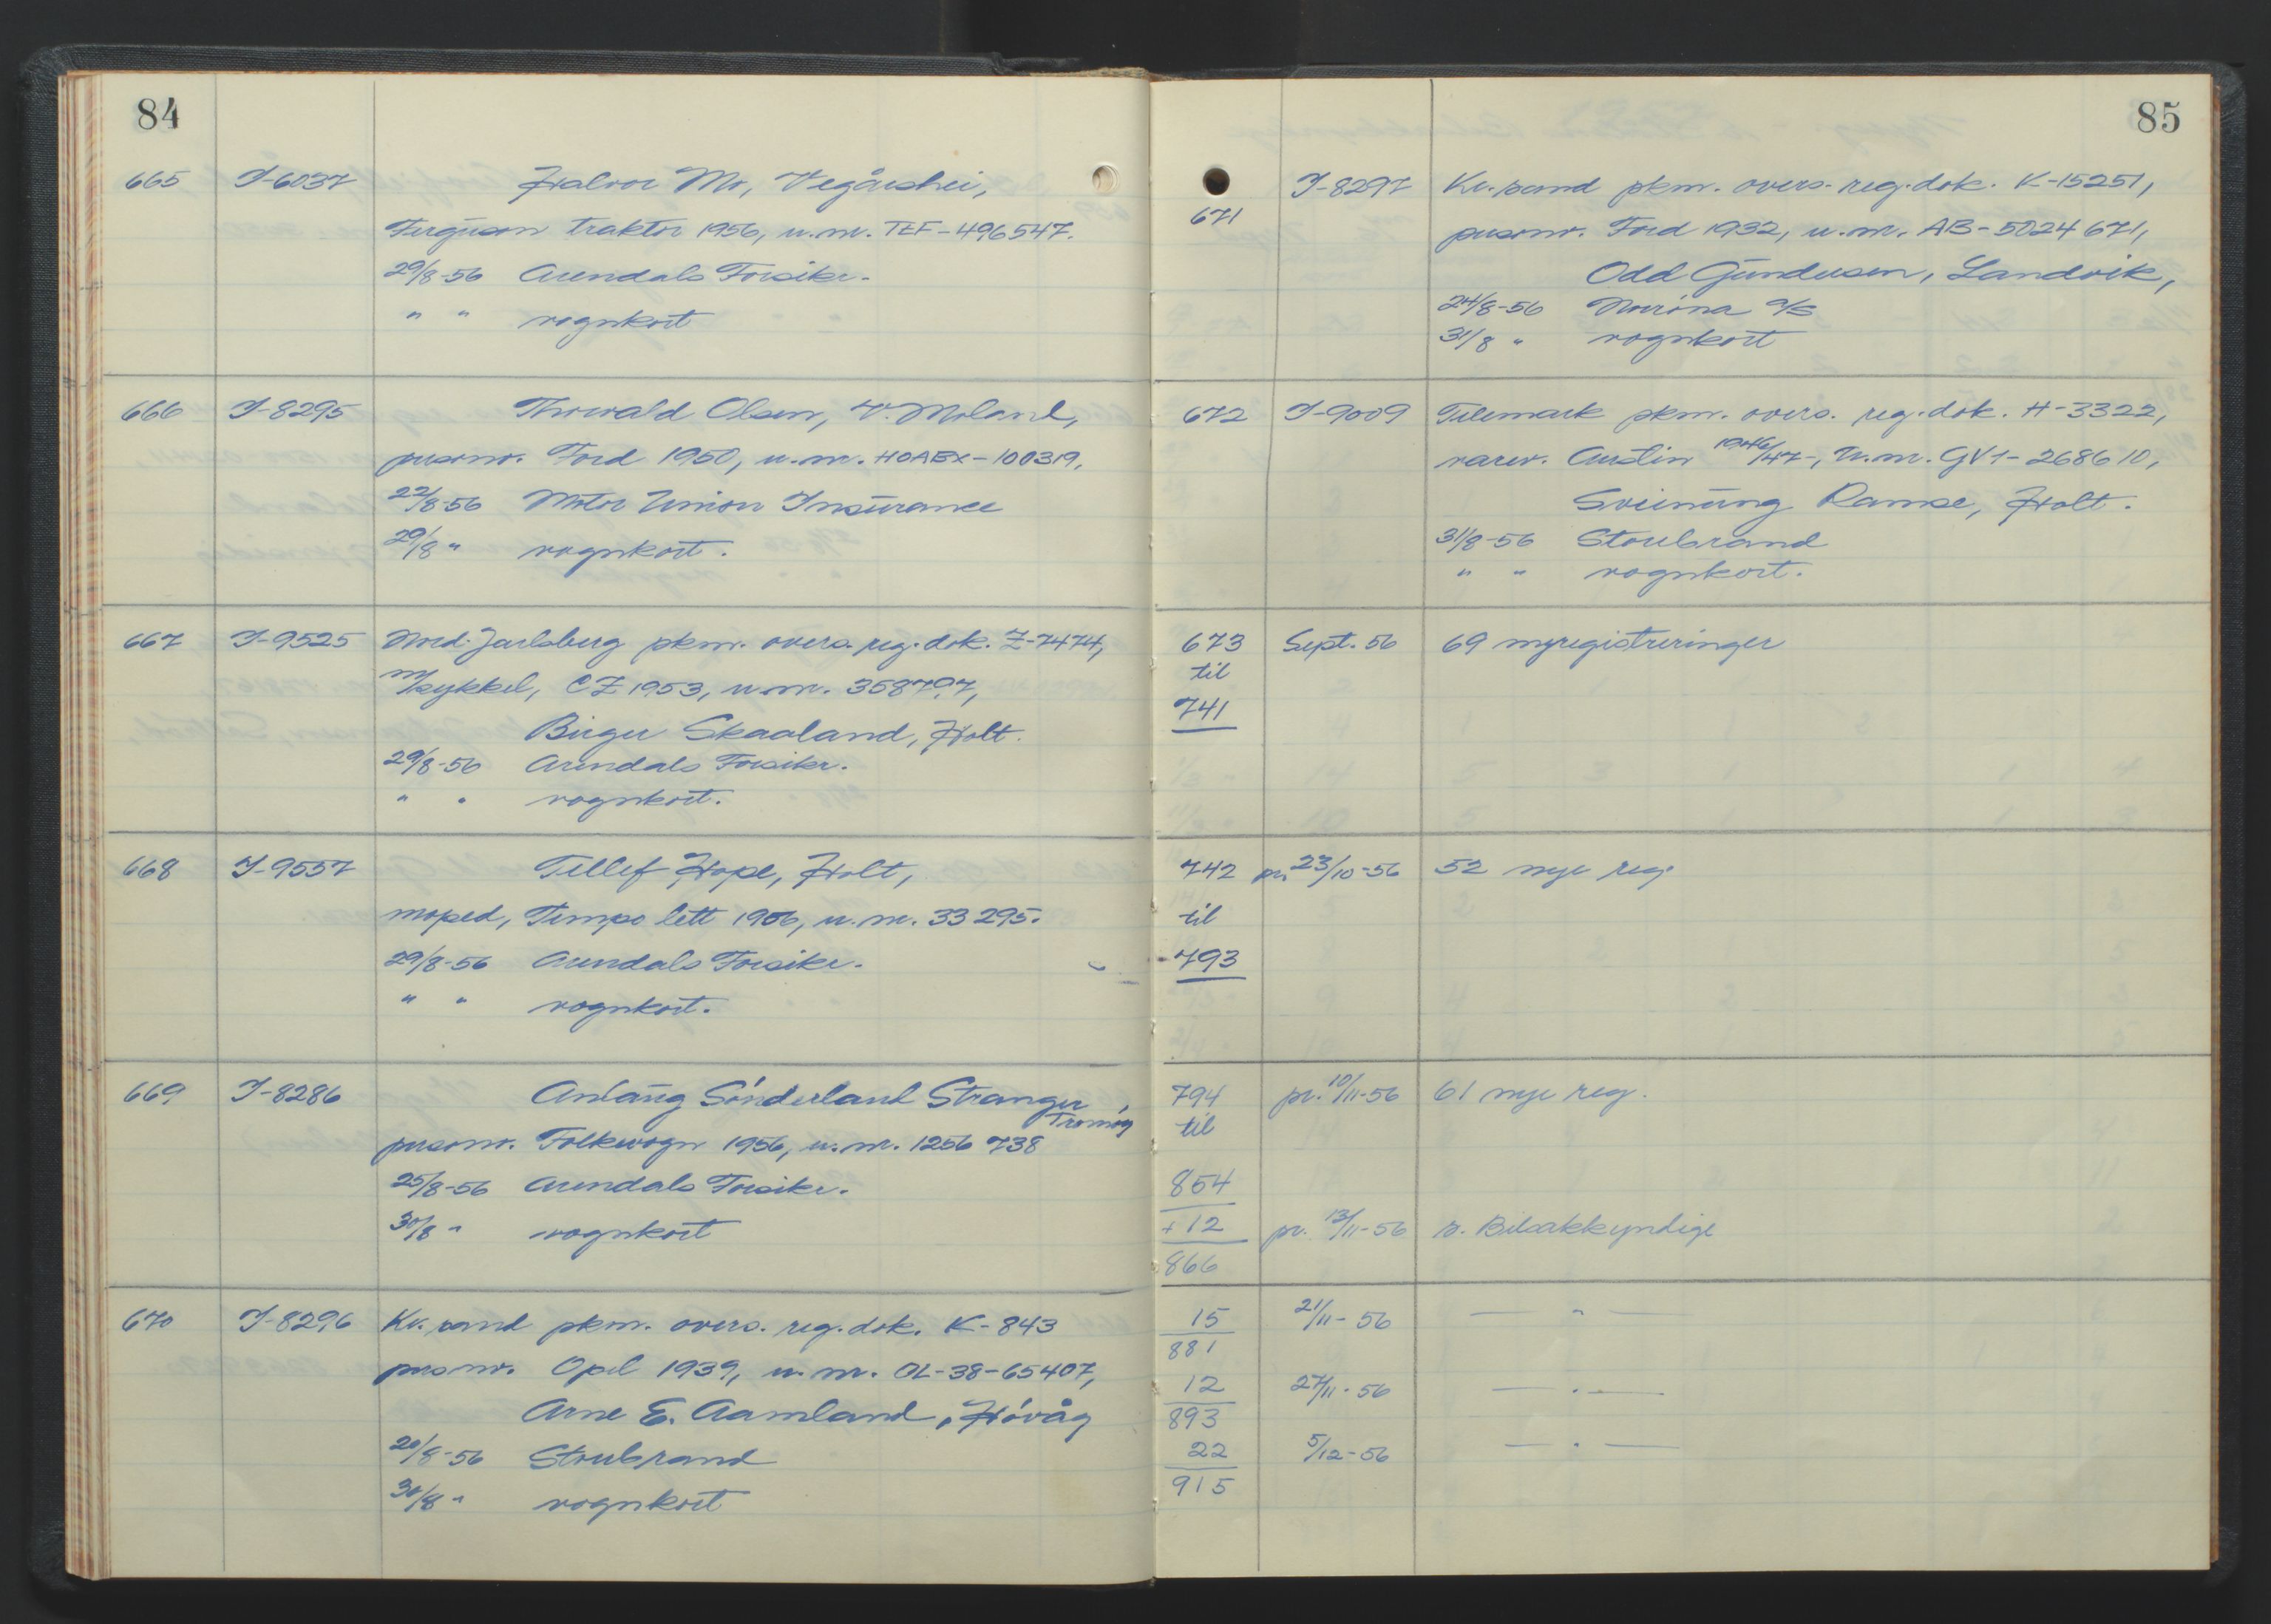 84
665 I-6037 Halvor Mo, Vegårshei,
Ferguson traktor 1956, u.nr. TEF-496547.
29/8-56 Arendals Forsikr.
" " vognkort
666 I-8295 Thorvald Olsen, V. Moland,
personv. Ford 1950, u.nr. HOAEX-100319,
22/8-56 Motor Union Insurance
29/8 " vognkort.
667 I-9525 Nord-Jarlsberg pkm. overs. reg.dok. Z-7474,
m/sykkel, CZ 1953, u.nr. 358797,
Birger Skaaland, Holt.
29/8-56 Arendals Forsikr.
" " vognkort.
668 I-9557 Tellef Hope, Holt,
moped, Tempo lett 1956, u.nr. 33295.
29/8-56 Arendals Forsikr.
" " vognkort.
669 I-8286 Aslaug Sønderland Stranger,
Tromøy
personv. Folkevogn 1956, u.nr. 1256738
25/8-56 Arendals Forsikr.
30/8 " vognkort
670 I-8296 Kr.sand pkm. overs. reg.dok. K-843
personv. Opel 1939, u.nr. OL-38-65407,
Arne E. Aamland, Høvåg
20/8-56 Storebrand
30/8 " vognkort
85
671 I-8297 Kr.sand pkm. overs. reg.dok. K-15251,
personv. Ford 1932, u.nr. AB-5024671,
Odd Gundersen, Landvik,
24/8-56 Norrøna A/S
31/8 " vognkort
672 I-9009 Telemark pkm. overs. reg.dok. H-3322,
varev. Austin 1946/47-, u.nr. GV1-268610,
Sveinung Ramse, Holt.
31/8-56 Storebrand
" " vognkort.
673 Sept. 56 69 nyregistreringer
til
741
742 pr. 23/10-56 52 nye reg.
til
793
794 pr. 10/11-56 61 nye reg.
til
854
+ 12 pr. 13/11-56 s. Bilsakkyndige
866
15 21/11-56 — " —
881
12 27/11-56 — " —
893
22 5/12-56 — " —
915